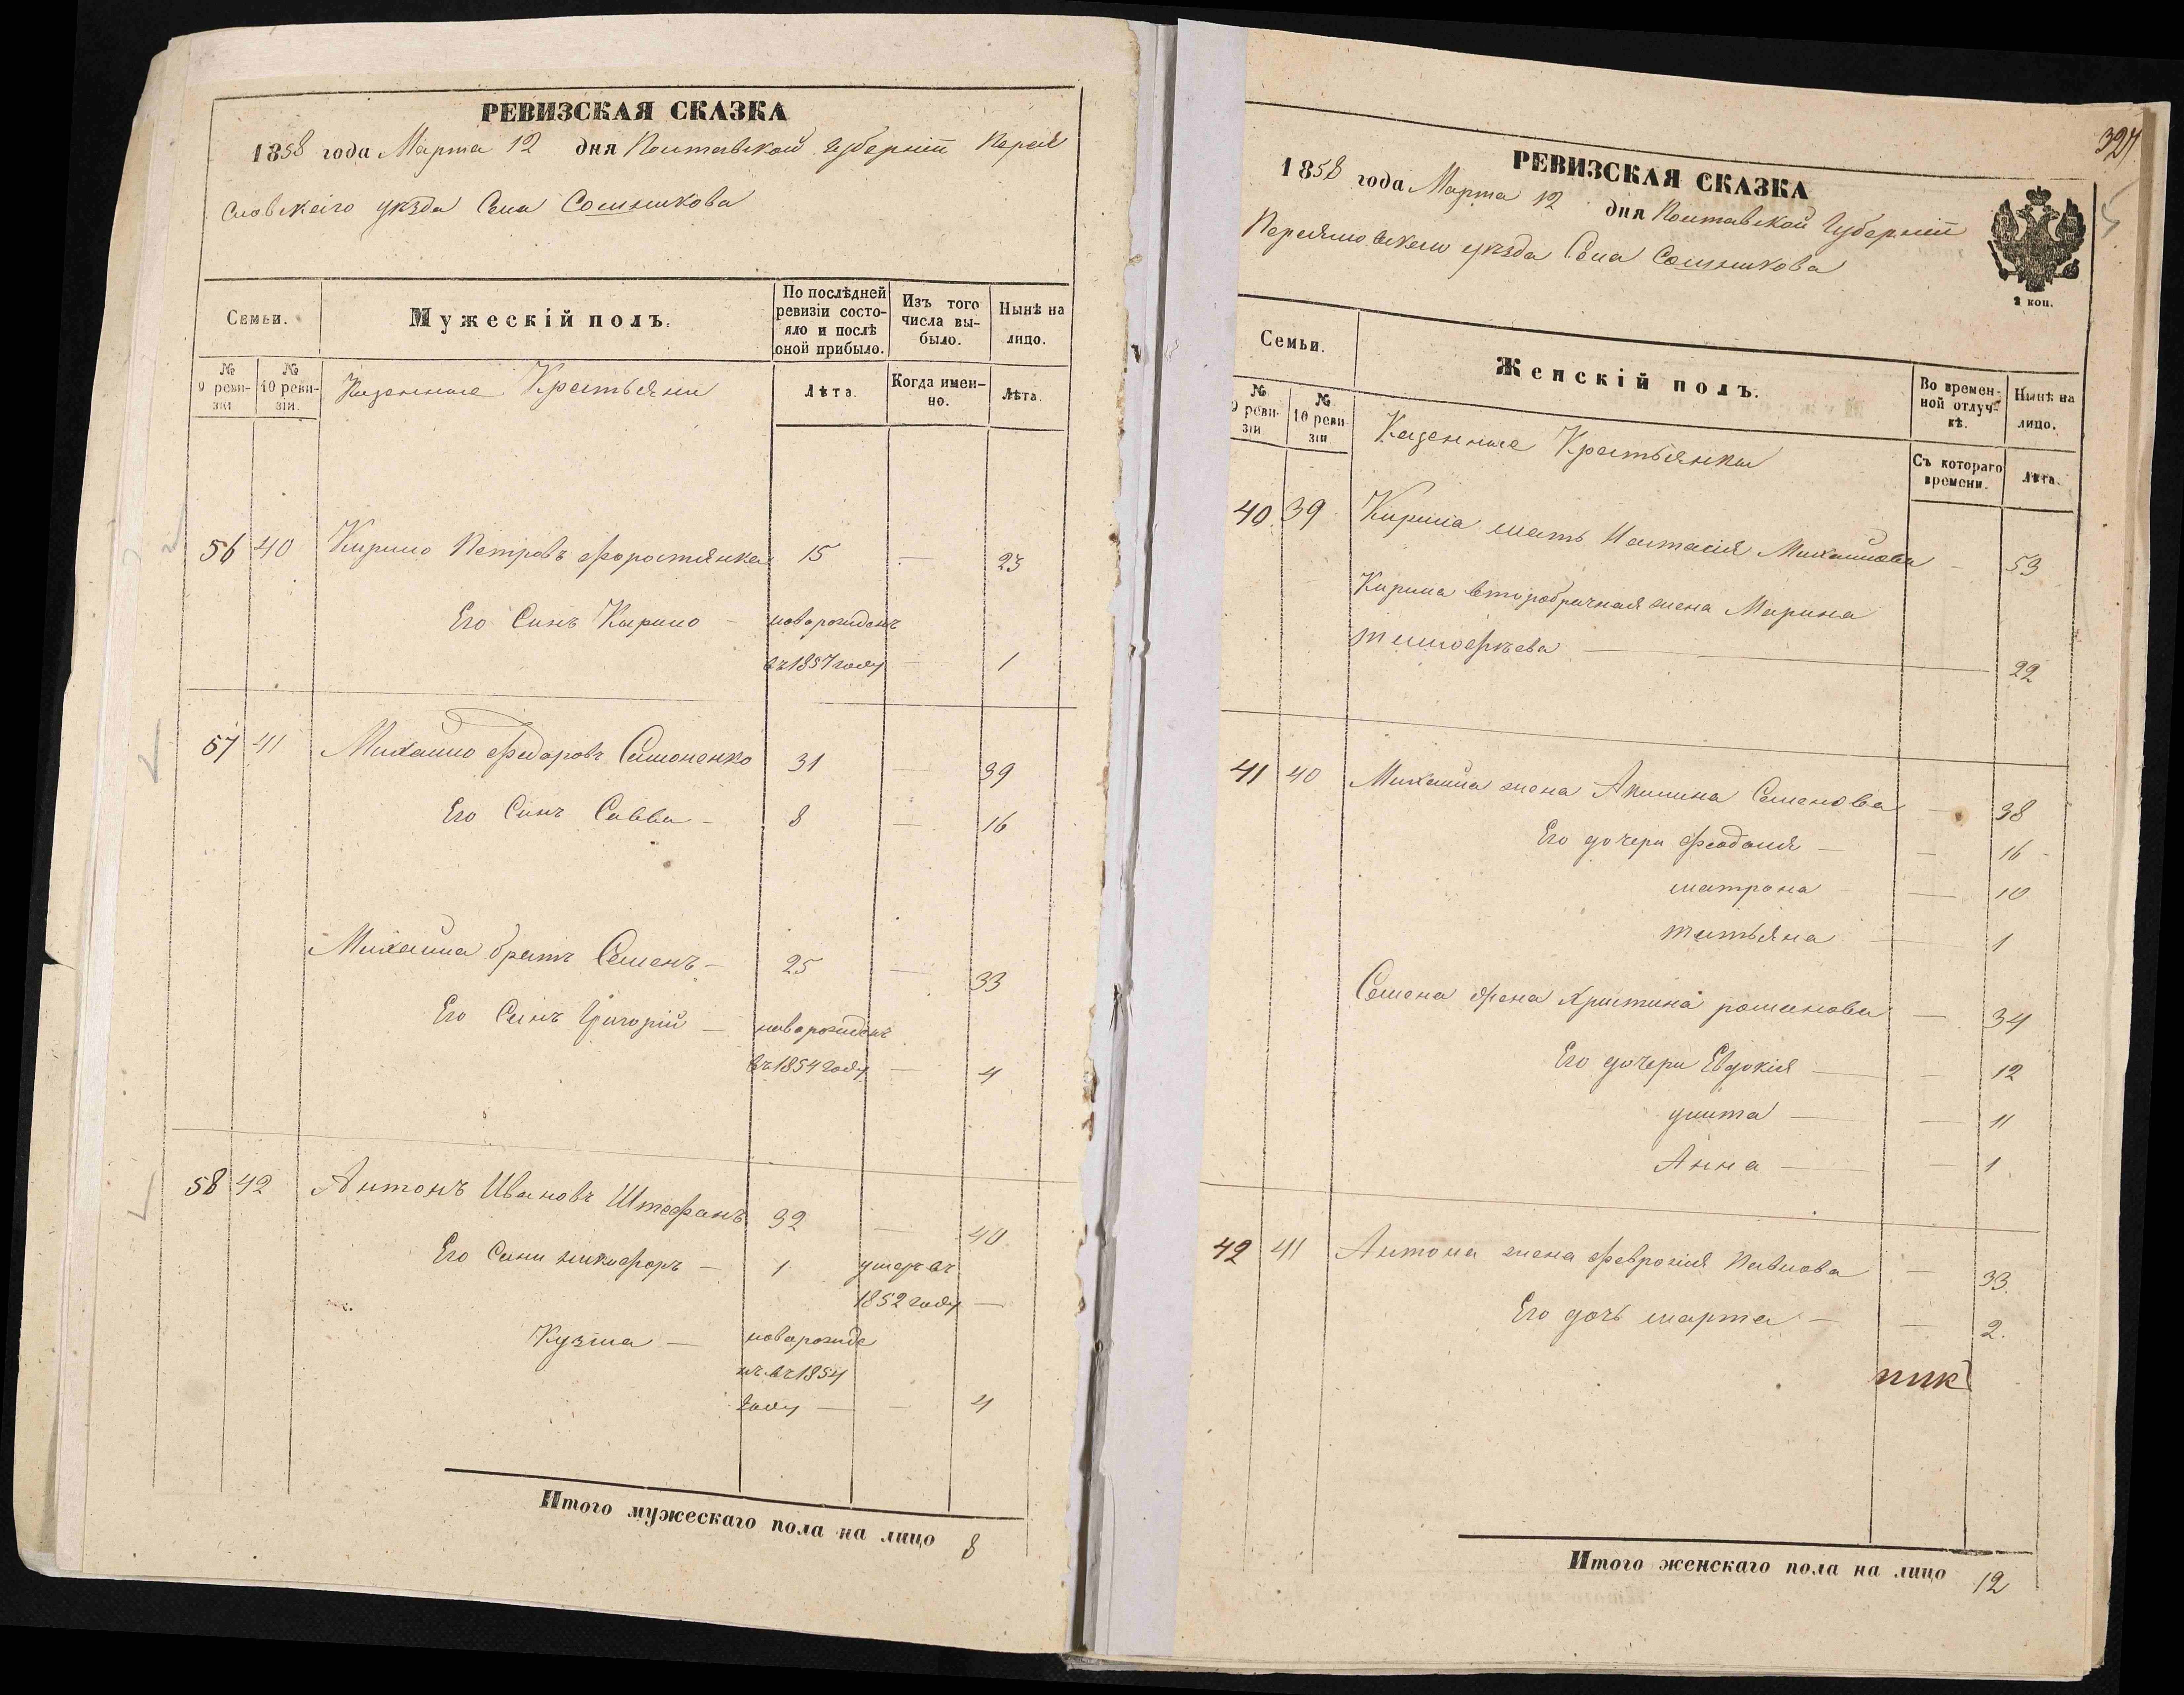 РЕВИЗСКАЯ СКАЗКА
1858 года Марта 12 дня Полтавской Губерніи Перея
словскаго уезда Села Сошникова
Семьи.
Мужескій полъ.
По послѣдней ревизіи состо-
яло и послѣ
оной прибыло.
Изъ того
числа вы-
было.
Нынѣ на
лицо.
№
9 реви-
зіи
№
10 реви-
зіи.
Казенные Крестьяни
Лѣта.
Когда имен-
но.
Лѣта.
56 40 Кирило Петровъ Форостянка 15 — 23
Его Синъ Кирило — новорожденъ
въ 1857 году — 1
57 41 Михайло Федоровъ Симоненко 31 — 39
Его Синъ Савва — 8 — 16
Михайла братъ Семенъ — 25 — 33
Его Синъ Григорій — новорожденъ
въ 1854 году — 4
58 42 Антонъ Ивановъ Штефанъ 32 — 40
Его Сини никифоръ — 1 умеръ въ
1852 году —
Кузма — новорожде
нъ въ 1854
году — — 4
Итого мужескаго пола на лицо 8
327
РЕВИЗСКАЯ СКАЗКА
1858 года Марта 12 дня Полтавской Губерніи
Переяславскаго уезда Села Сошникова
2 коп.
Семьи.
Женскій полъ.
Во времен-
ной отлуч-
кѣ.
Нынѣ на
лицо.
№
9 реви-
зіи
№
10 реви-
зіи
Казенные Крестьянки
Съ котораго
времени.
Лѣта.
40 39 Кирила мать Настасія Михайлова — 53
Кирила второбрачная жена Марина
тимофѣева — 22
41 40 Михайла жена Акилина Семенова — 38
Его дочери Феодосия — — 16
матрона — — 10
татьяна — 1
Семена жена Христина романова — 34
Его дочери Евдокія — — 12
улита — — 11
Анна — — 1
42 41 Антона жена Феврония Павлова — 33
Его дочь марта — — 2.
Итого женскаго пола на лицо 12